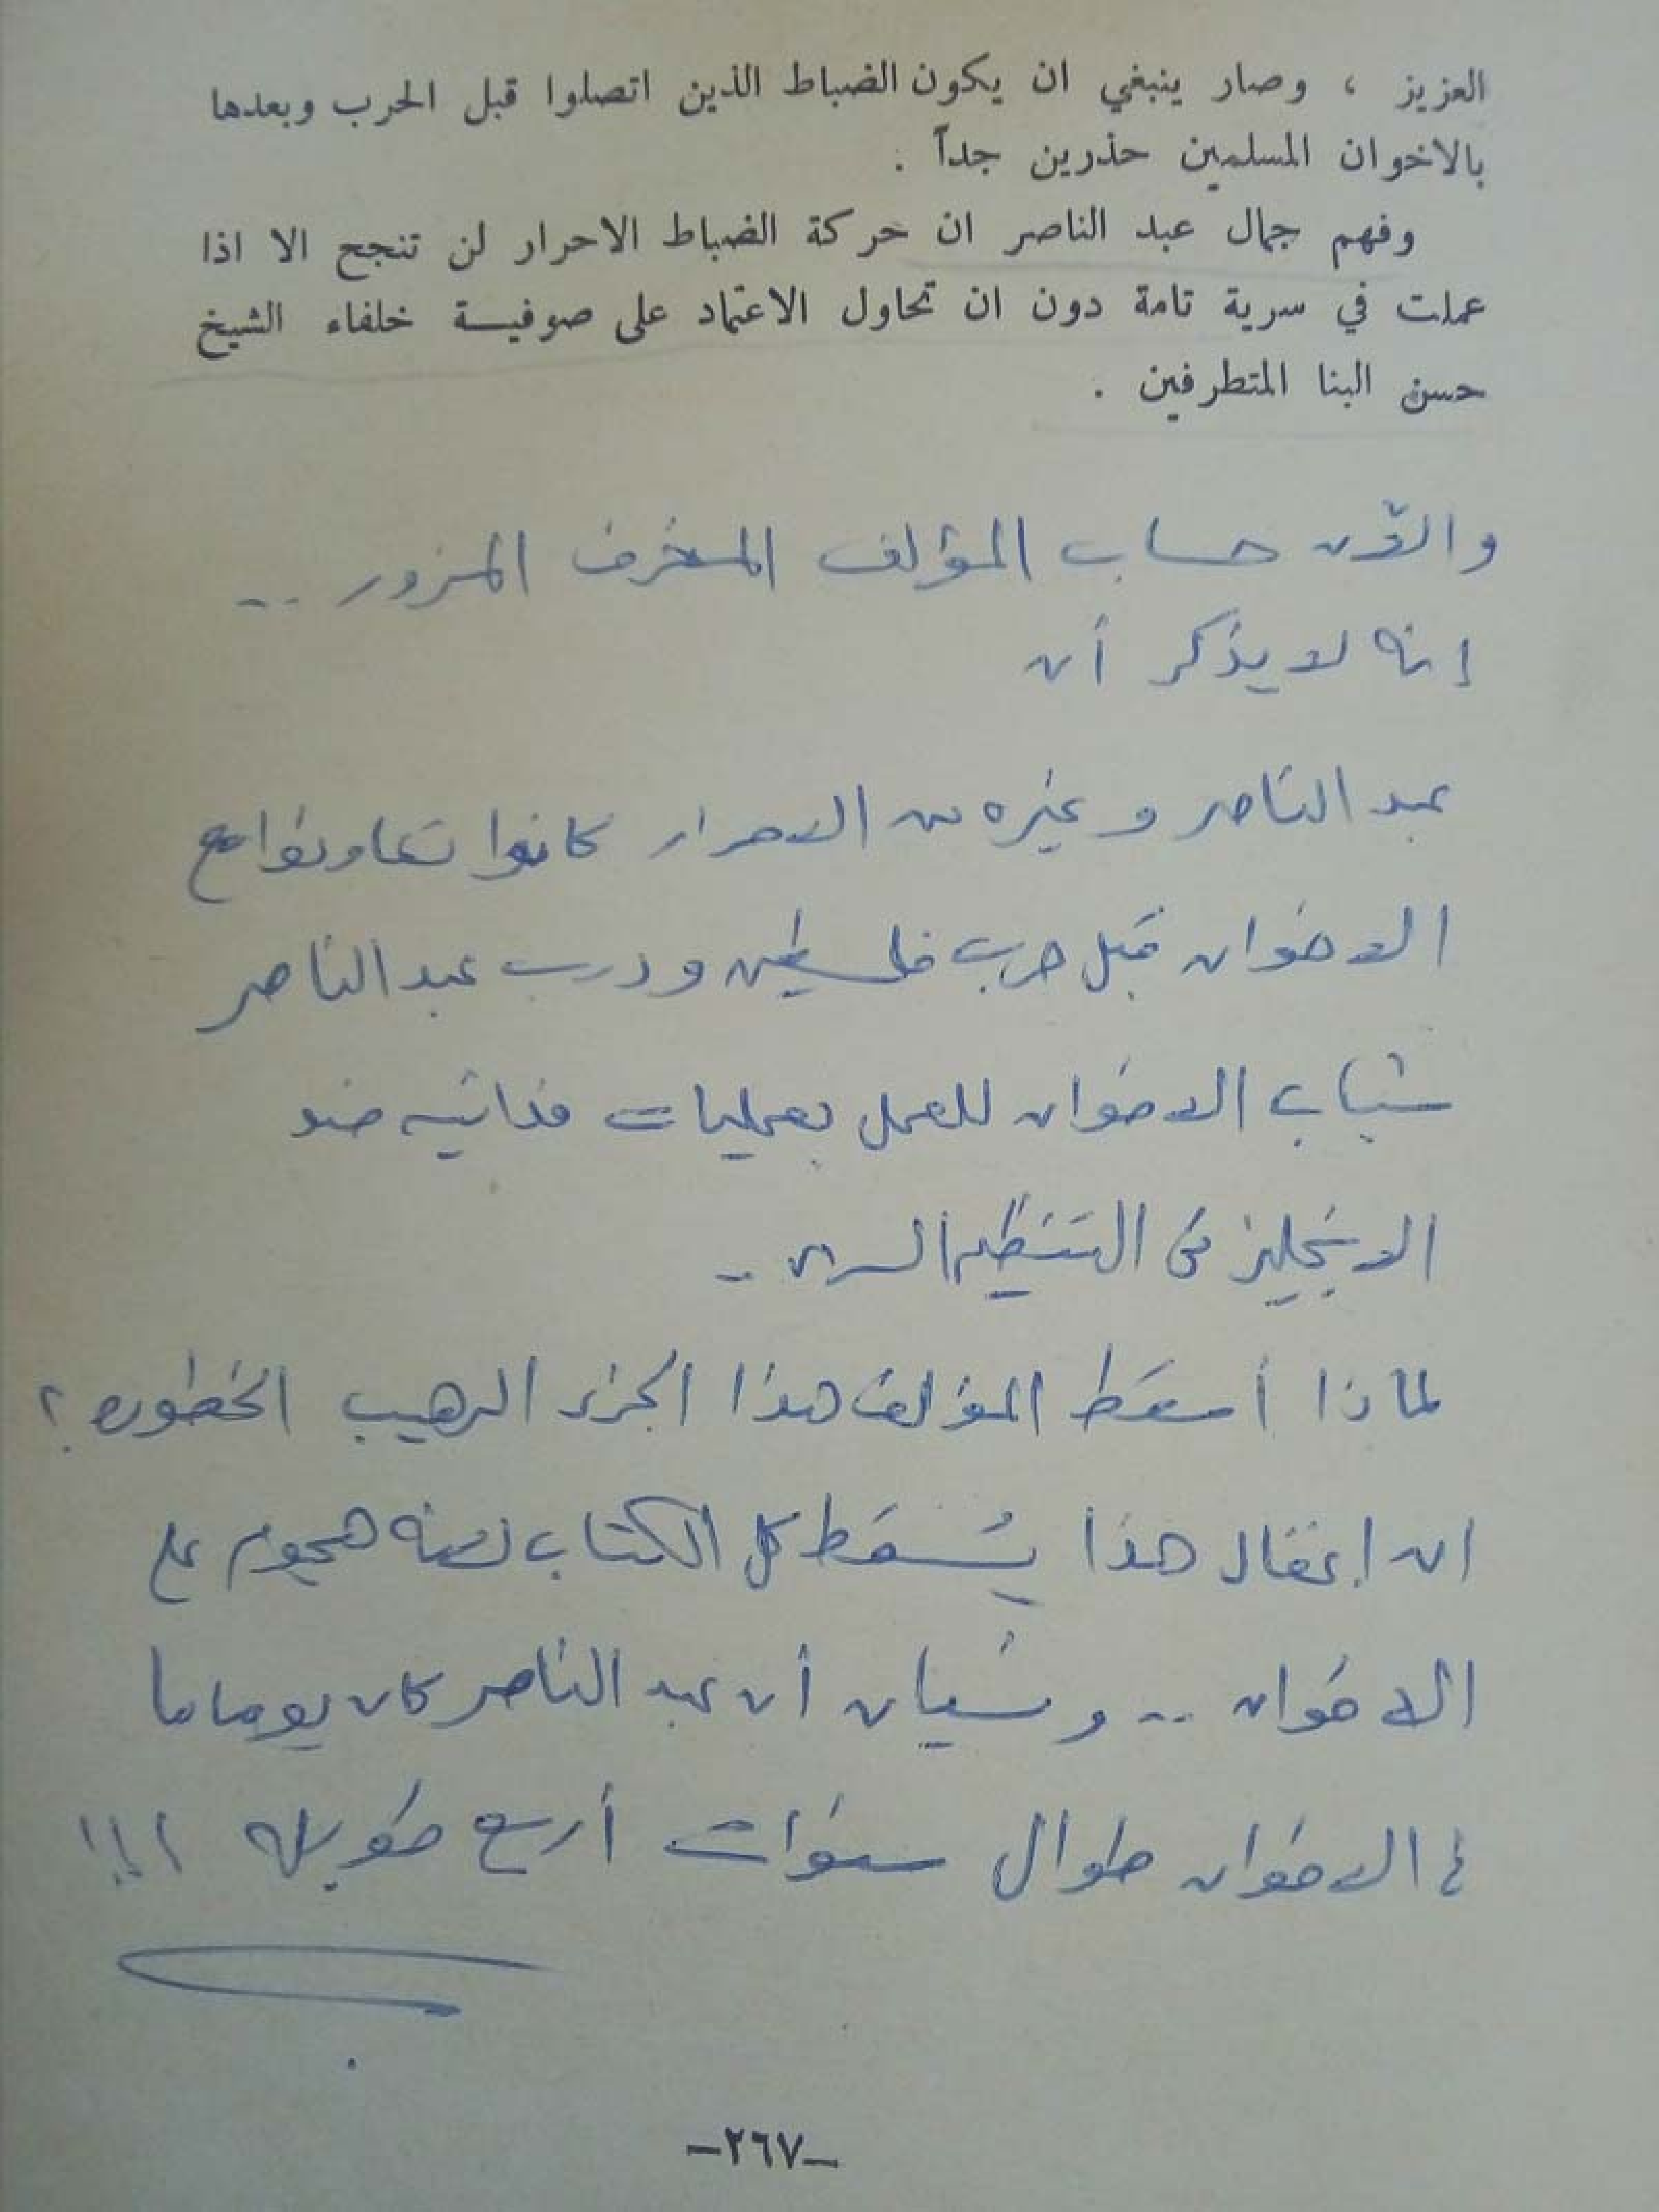 العزيز ، وصار ينبغي ان يكون الضباط الذين اتصلوا قبل الحرب وبعدها
بالاخوان المسلمين حذرين جداً .
وفهم جمال عبد الناصر ان حركة الضباط الاحرار لن تنجح الا اذا
عملت في سرية تامة دون ان تحاول الاعتماد على صوفية خلفاء الشيخ
حسن البنا المتطرفين .
والآن حساب المؤلف المخرف المزور ..
إنه لا يذكر أن
عبد الناصر وغيره من الاحرار كانوا تعاونوا مع
الاخوان قبل حرب فلسطين ودرب عبد الناصر
شباب الاخوان للعمل بعمليات فدائيه ضد
الانجليز فى التنظيم السرى ..
لماذا أسقط المؤلف هذا الجزء الرهيب الخطوره ؟
ان اغفال هذا يُسقط كل الكتاب لأنه هجوم على
الاخوان .. ونسيان أن عبد الناصر كان يوما ما
فى الاخوان طوال سنوات أربع طويله !!!
–٢٦٧–